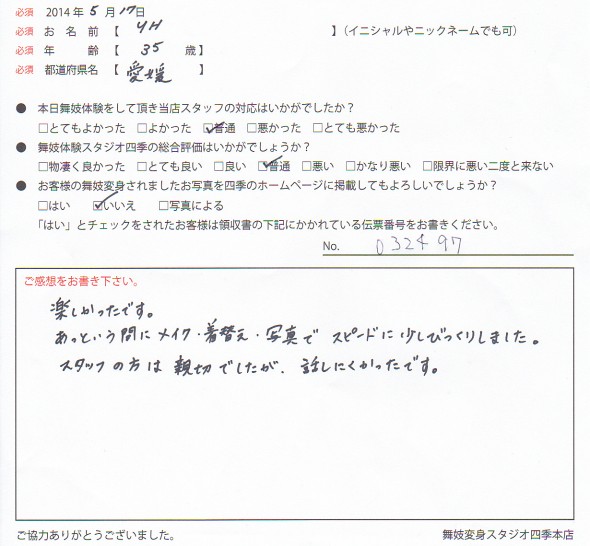 必須 2014年5月17日
必須 お名前【 YH 】(イニシャルやニックネームでも可)
必須 年齢【 35 歳】
必須 都道府県名【 愛媛 】
● 本日舞妓体験をして頂き当店スタッフの対応はいかがでしたか?
□とてもよかった □よかった ☑普通 □悪かった □とても悪かった
● 舞妓体験スタジオ四季の総合評価はいかがでしょうか?
□物凄く良かった □とても良い □良い ☑普通 □悪い □かなり悪い □限界に悪い二度と来ない
● お客様の舞妓変身されましたお写真を四季のホームページに掲載してもよろしいでしょうか?
□はい ☑いいえ □写真による
「はい」とチェックをされたお客様は領収書の下記にかかれている伝票番号をお書きください。
No. 032497
ご感想をお書き下さい。
楽しかったです。
あっという間にメイク・着替え・写真で スピードに少しびっくりしました。
スタッフの方は親切でしたが、話しにくかったです。
ご協力ありがとうございました。
舞妓変身スタジオ四季本店